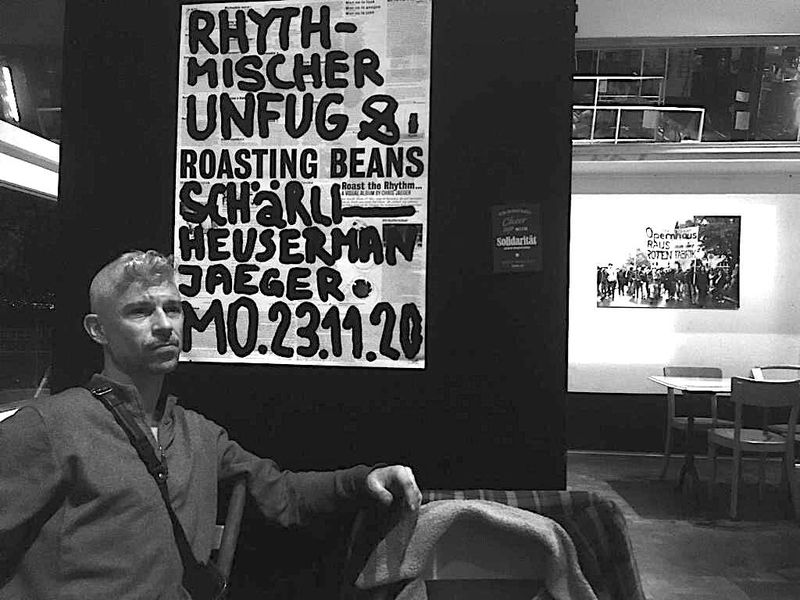 RHYTH-
MISCHER
UNFUG &
ROASTING BEANS
Roast the Rhythm...
A VISUAL ALBUM BY CHRIS JAEGER
SCHÄRLI
HEUSERMAN
JAEGER.
MO.23.11.20
Solidarität
Opernhaus
RAUS
ROTEN FABRIK